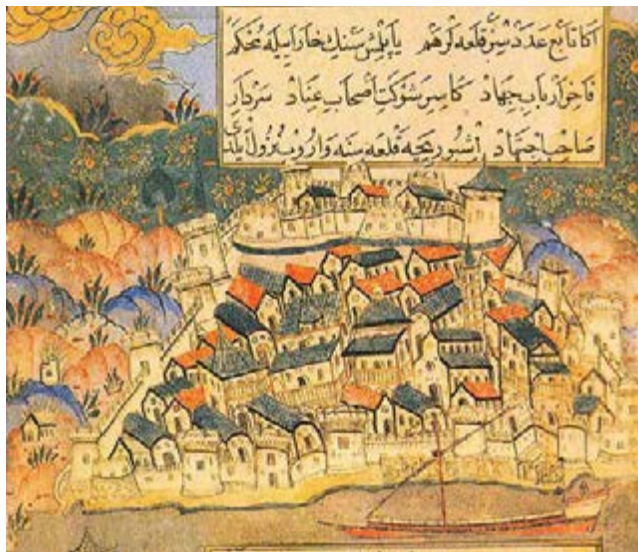 اكا تابع عددسز قلعه لرهم ياپلمش سنك خارا ايله محكم
ارباب جهاد كاسر شوكت اصحاب عناد سردار
صاحب اجتهاد اشبو ريجه قلعه سنه واروب نزول ايلدى